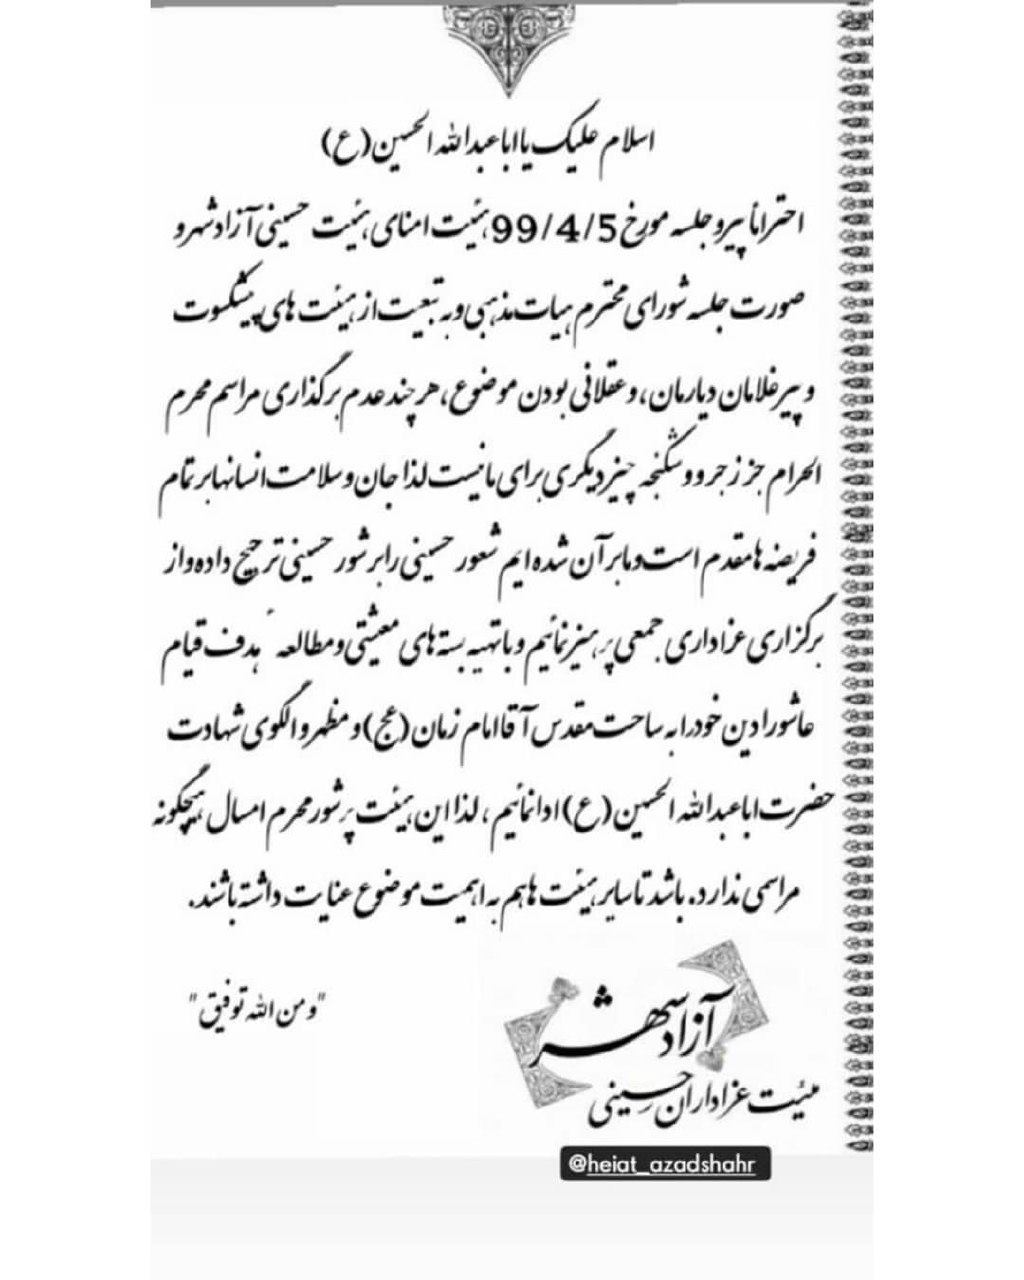 اسلام علیک یا اباعبدالله الحسین(ع)
احتراماً پیرو جلسه مورخ 99/4/5 هئیت امنای هئیت حسینی آزادشهر و
صورت جلسه شورای محترم هیات مذهبی و به تبعیت از هیئت های پیشکسوت
و پیرغلامان دیارمان، و عقلانی بودن موضوع، هر چند عدم برگذاری مراسم محرم
الحرام جز زجر و و شکنجه چیز دیگری برای ما نیست لذا جان و سلامت انسانها بر تمام
فریضه ها مقدم است و ما بر آن شده ایم شعور حسینی را بر شور حسینی ترجیح داده و از
برگزاری عزاداری جمعی پرهیز نمائیم و با تهیه بسته های معیشتی و مطالعه ٔ هدف قیام
عاشورا دین خود را به ساحت مقدس آقا امام زمان (عج) و مظهر و الگوی شهادت
حضرت اباعبدالله الحسین (ع) ادا نمائیم، لذا این هیئت پرشور محرم امسال هیچگونه
مراسمی ندارد. باشد تا سایر هیئت ها هم به اهمیت موضوع عنایت داشته باشند.
"و من الله توفیق"
آزادشهر
هیئت عزاداران حسینی
@heiat_azadshahr